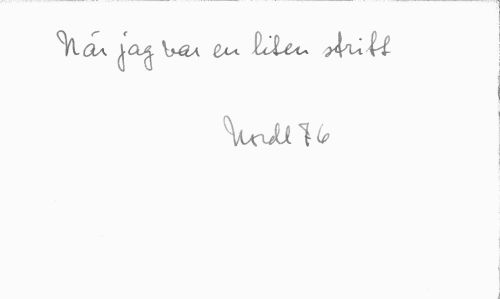 När jag var en liten stritt
Nordl 76